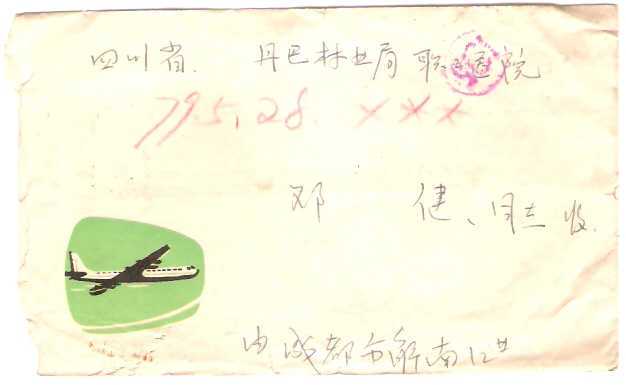 四川省. 丹巴林业局 职工医院
79.5.28. ×××
邓 健、同志 收.
由成都市 南12#